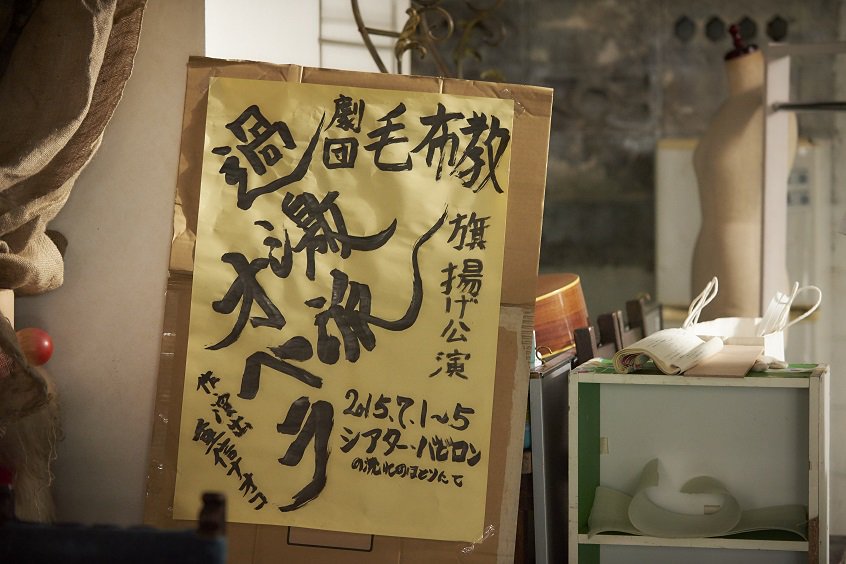 劇団毛布教
旗揚げ公演
過激派
オペラ
2015.7.1〜5
シアター・バビロン
の流れのほとりにて
作・演出
重信ナオコ